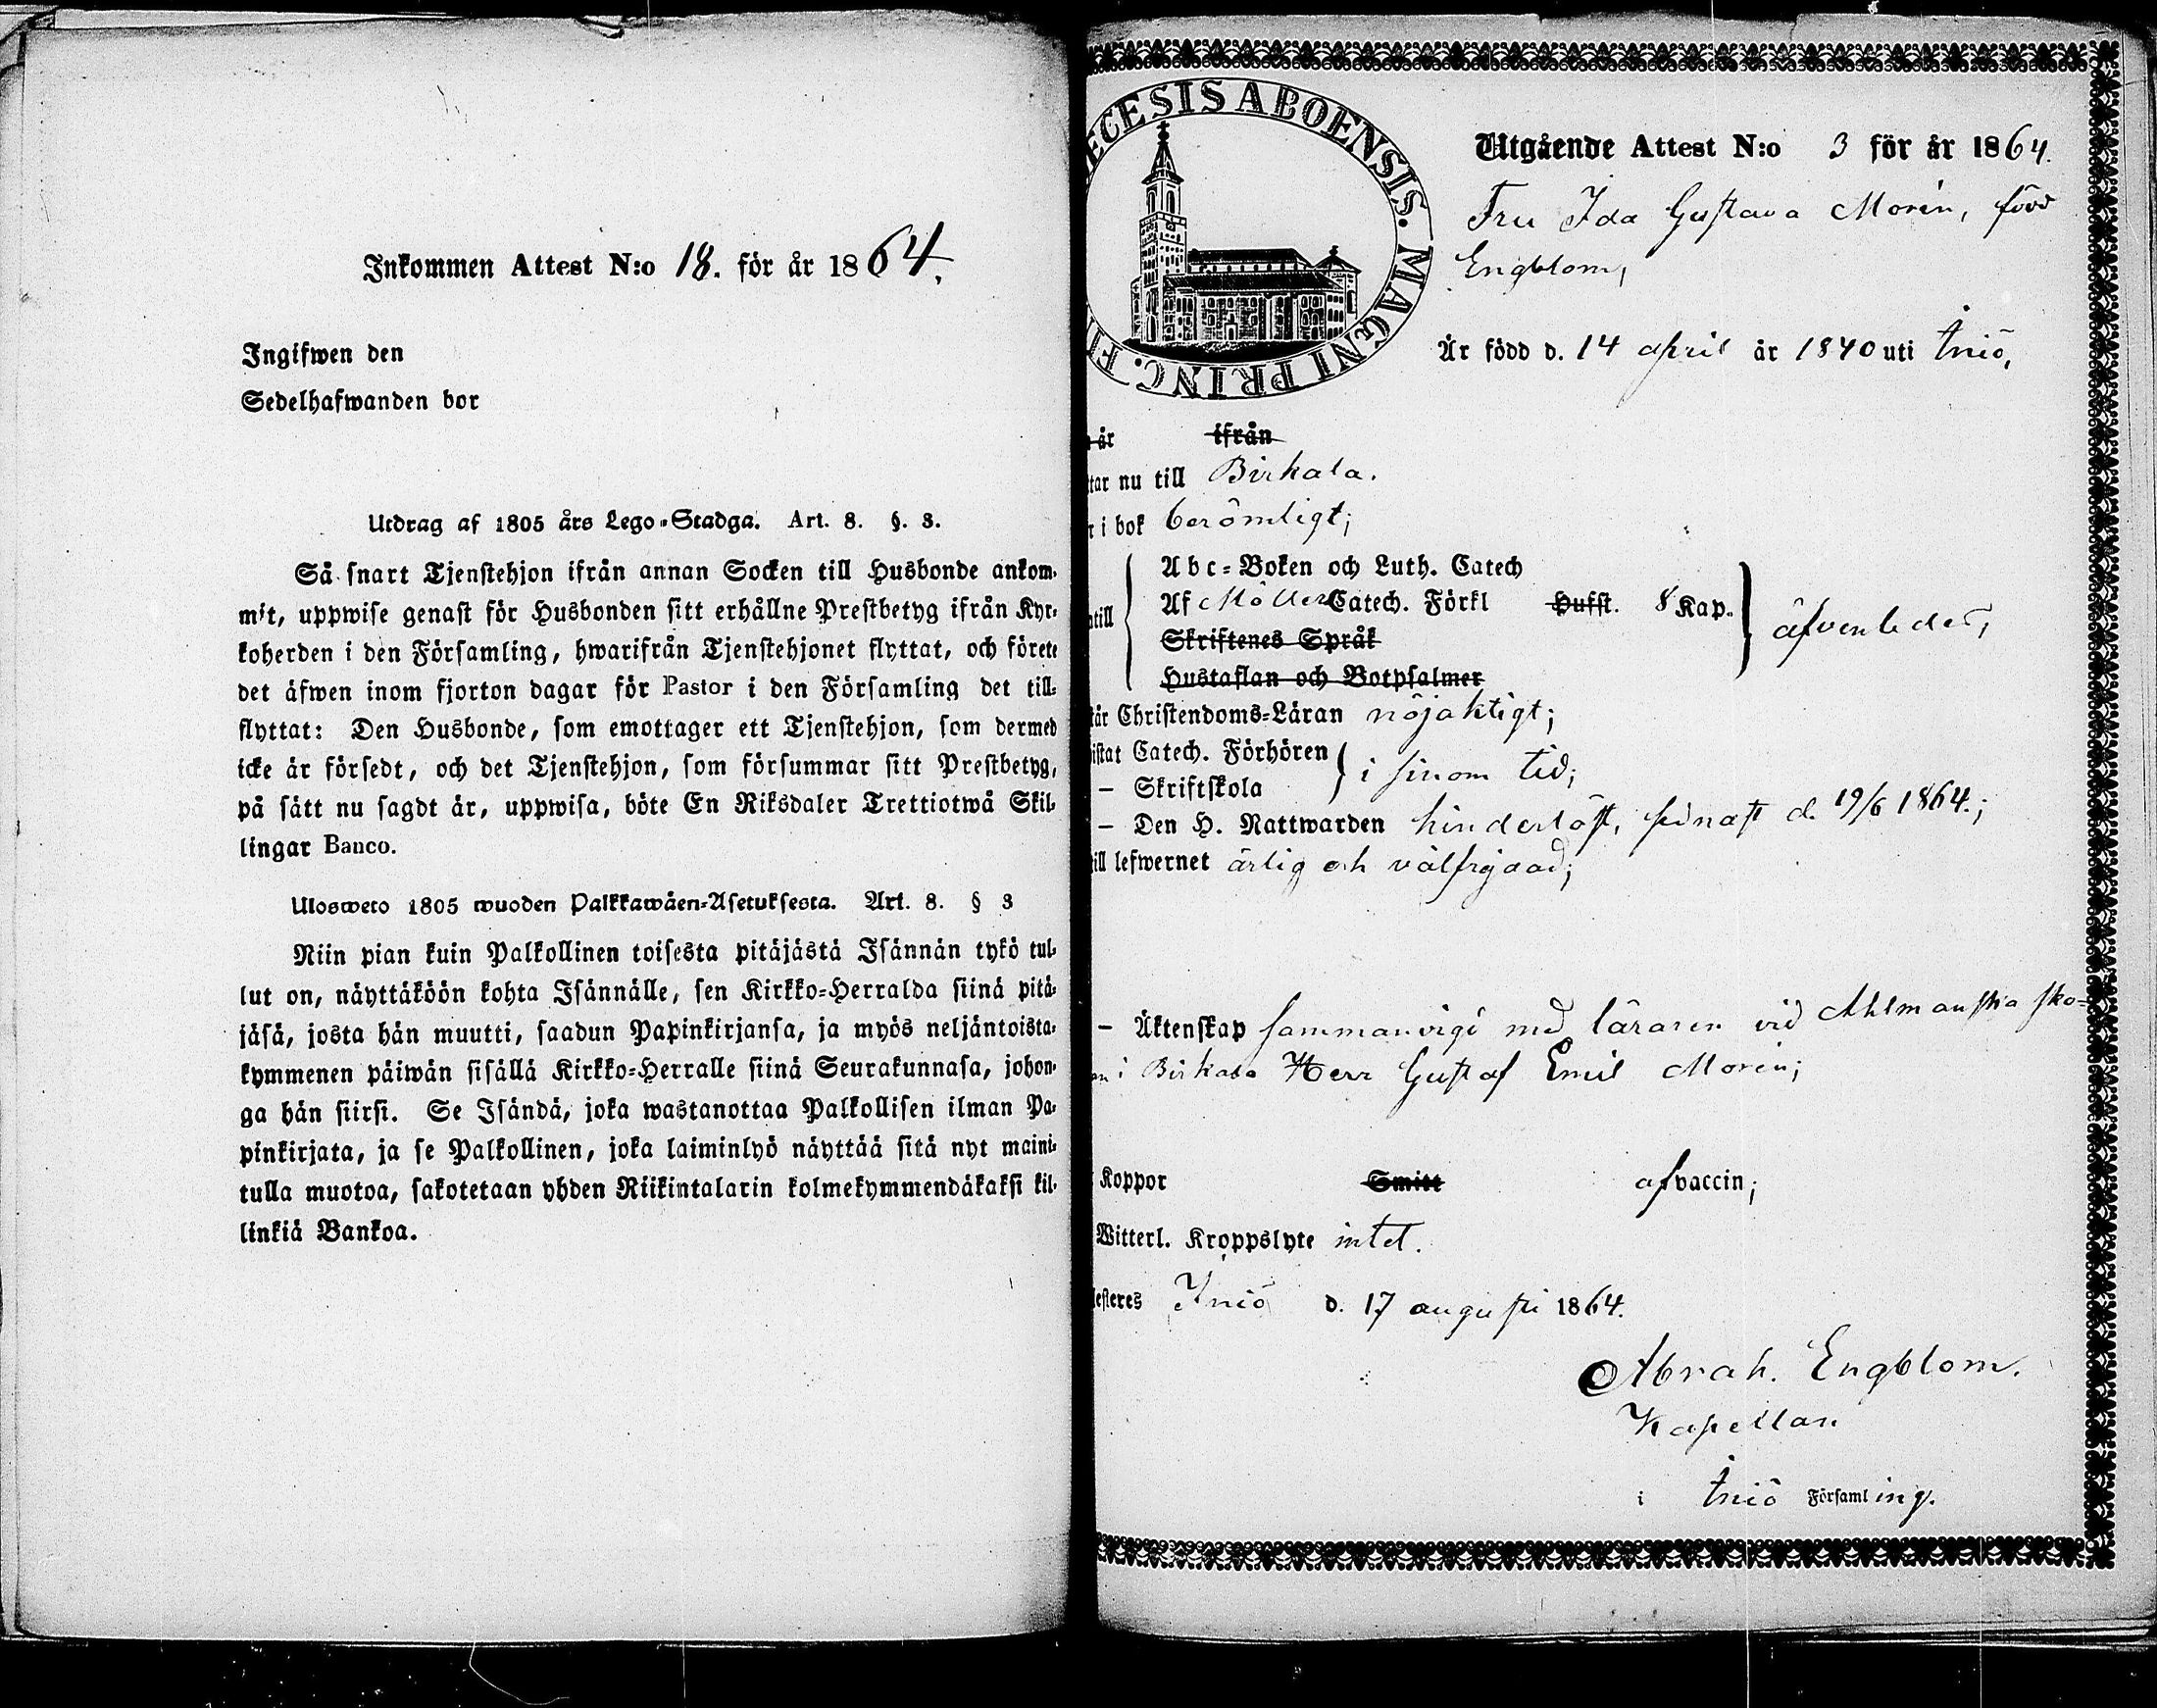 Inkommen Attest N:o 18. för år 1864.
Ingifwen den
Sedelhafwanden bor
Utdrag af 1805 års Lego-Stadga. Art. 8. §. 3.
Så snart Tjenstehjon ifrån annan Socken till Husbonde ankom-
mit, uppwise genast för Husbonden sitt erhållne Prestbetyg ifrån Kyr-
koherden i den Församling, hwarifrån Tjenstehjonet flyttat, och förete
det äfwen inom fjorton dagar för Pastor i den Församling det till-
flyttat: Den Husbonde, som emottager ett Tjenstehjon, som dermed
icke är försedt, och det Tjenstehjon, som försummar sitt Prestbetyg,
på sätt nu sagdt är, uppwisa, böte En Riksdaler Trettiotwå Skil-
lingar Banco.
Ulosweto 1805 wuoden Palkkawäen-Asetuksesta. Art. 8. § 3
Niin pian kuin Palkollinen toisesta pitäjästä Isännän tykö tul-
lut on, näyttäköön kohta Isännälle, sen Kirkko-Herralda siinä pitä-
jäsä, josta hän muutti, saadun Papinkirjansa, ja myös neljäntoista-
kymmenen päiwän sisällä Kirkko-Herralle siinä Seurakunnasa, johon-
ga hän siirsi. Se Isändä, joka wastanottaa Palkollisen ilman Pa-
pinkirjata, ja se Palkollinen, joka laiminlyö näyttää sitä nyt maini-
tulla muotoa, sakotetaan yhden Riikintalarin kolmekymmendäkaksi kil-
linkiä Bankoa.
ECESIS ABOENSIS. MAGNI PRINC. FI
Utgående Attest N:o 3 för år 1864.
Fru Ida Gustava Morin, född
Engblom,
Är född d. 14 april år 1840 uti Iniö,
år ifrån
tar nu till Birkala.
r i bok berömligt;
Abc-Boken och Luth. Catech
Af Möllers Catech. Förkl Hufst. 8 Kap.
ntill
äfvenledes,
Skriftenes Språk
Hustaflan och Botpsalmer
tår Christendoms-Läran nöjaktigt;
istat Catech. Förhören
i sinom tid;
– Skriftskola
– Den H. Nattwarden hinderlöst, sednast d. 19/6 1864.;
till lefwernet ärlig och välfrejdad;
– Äktenskap sammanvigd med läraren vid Ahlmanska sko-
an i Birkala Herr Gustaf Emil Morin;
Koppor Smitt af vaccin;
Witterl. Kroppslyte intet.
testeres Iniö d. 17 augusti 1864.
Abrah. Engblom.
Kapellan
i Iniö Församling.